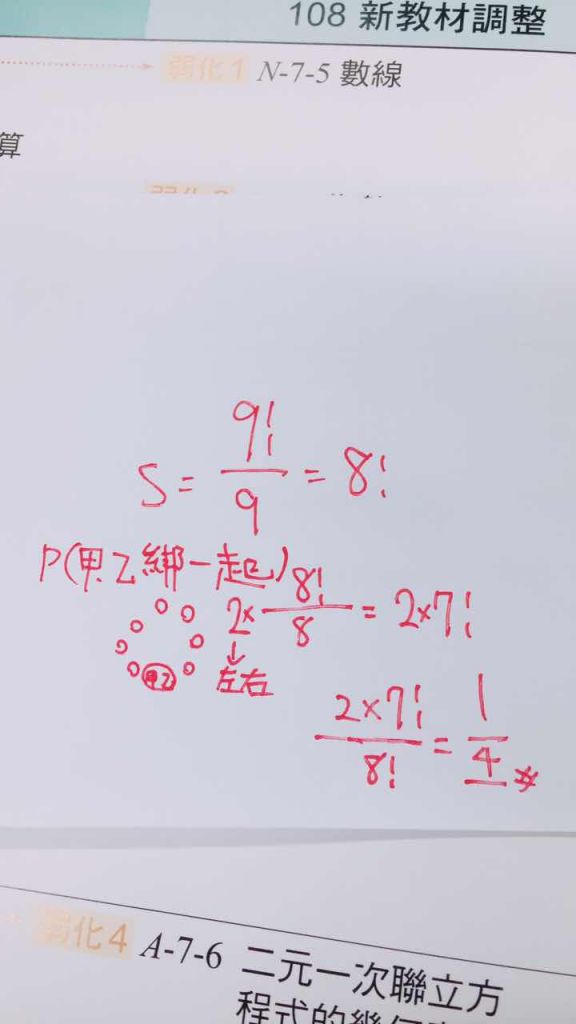 108 新教材調整
弱化1 N-7-5 數線
算
S = 9!/9 = 8!
P(甲乙綁一起)
2× 8!/8 = 2×7!
↓
甲乙 左右
2×7!/8! = 1/4 *
弱化4 A-7-6 二元一次聯立方
程式的幾何